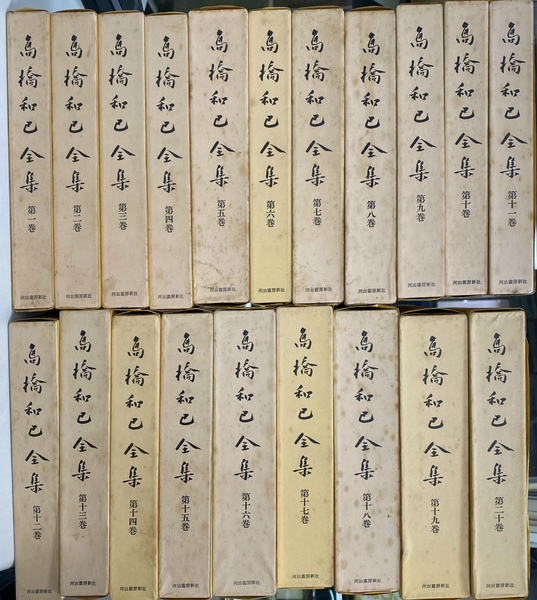 高橋和巳全集 第一巻 河出書房新社
高橋和巳全集 第二巻 河出書房新社
高橋和巳全集 第三巻 河出書房新社
高橋和巳全集 第四巻 河出書房新社
高橋和巳全集 第五巻 河出書房新社
高橋和巳全集 第六巻 河出書房新社
高橋和巳全集 第七巻 河出書房新社
高橋和巳全集 第八巻 河出書房新社
高橋和巳全集 第九巻 河出書房新社
高橋和巳全集 第十巻 河出書房新社
高橋和巳全集 第十一巻 河出書房新社
高橋和巳全集 第十二巻 河出書房新社
高橋和巳全集 第十三巻 河出書房新社
高橋和巳全集 第十四巻 河出書房新社
高橋和巳全集 第十五巻 河出書房新社
高橋和巳全集 第十六巻 河出書房新社
高橋和巳全集 第十七巻 河出書房新社
高橋和巳全集 第十八巻 河出書房新社
高橋和巳全集 第十九巻 河出書房新社
高橋和巳全集 第二十巻 河出書房新社